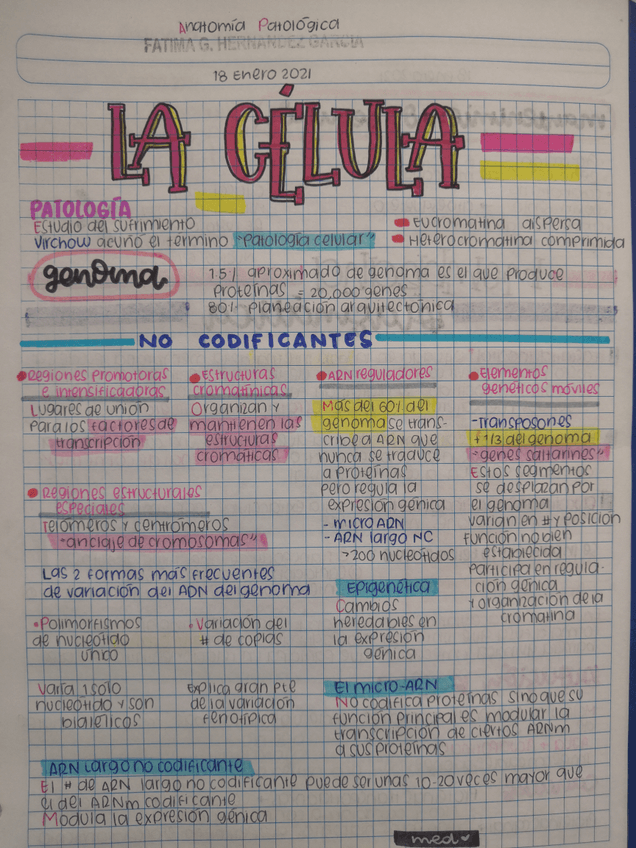 Anatomía Patológica
FATIMA G. HERNANDEZ GARCIA
18 Enero 2021
LA CÉLULA
PATOLOGÍA
Estudio del sufrimiento
Virchow acuño el termino "Patología celular"
Eucromatina dispersa
Heterocromatina comprimida
genoma
1.5% aproximado de genoma es el que produce
Proteínas = 20,000 genes
80% planeación arquitectónica
NO CODIFICANTES
Regiones promotoras
e intensificadoras
Lugares de unión
para los factores de
transcripción
Estructuras
cromatínicas
Organizan y
mantienen las
estructuras
cromáticas
ARN reguladores
Más del 60% del
genoma se trans-
cribe a ARN que
nunca se traduce
a Proteínas
pero regula la
expresión génica
- micro ARN
- ARN largo NC
>200 nucleótidos
Elementos
genéticos móviles
-Transposones
+ 1/3 del genoma
"genes saltarines"
Estos segmentos
se desplazan por
el genoma
varían en # y posición
función no bien
establecida
Participa en regula-
ción génica
y organización de la
cromatina
Regiones estructurales
especiales
Telómeros y centrómeros
"anclaje de cromosomas"
Las 2 formas más frecuentes
de variación del ADN del genoma
Polimorfismos
de nucleótido
único
Varía 1 solo
nucleótido y son
bialélicos
Variación del
# de copias
Explica gran pte
de la variación
fenotípica
Epigenética
Cambios
heredables en
la expresión
génica
El micro-ARN
No codifica proteínas sino que su
función principal es modular la
transcripción de ciertos ARNm
a sus proteínas
ARN Largo no codificante
El # de ARN largo no codificante puede ser unas 10-20 veces mayor que
el del ARNm codificante
Modula la expresión génica
med